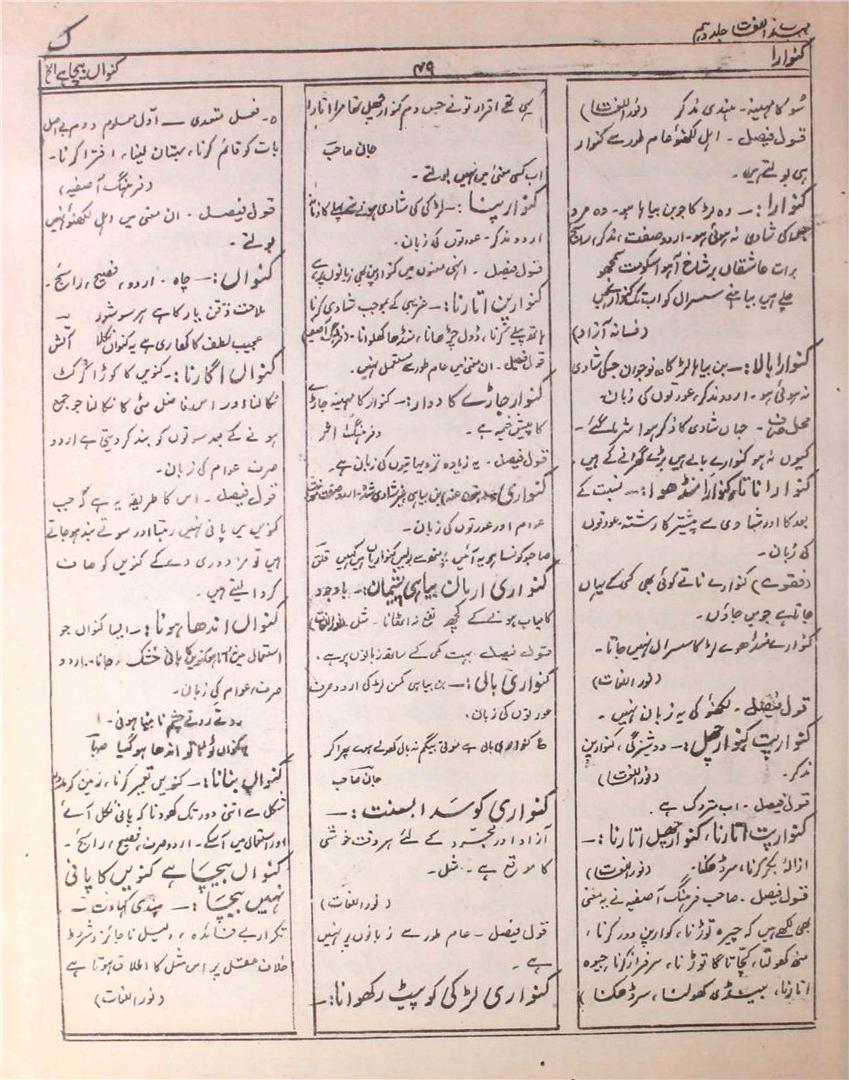 مہذب اللغات جلد دہم
ک
کنوارا
۴۹
کنواں بیچا ہے الخ
شو کا مہینہ۔ ہندی مذکر (نوراللغات)
قول فیصل۔ اہل لکھنؤ عام طور سے کنوار
ہی بولتے ہیں۔
کنوارا:۔ وہ لڑکا جو بن بیاہا ہو۔ وہ مرد
جس کی شادی نہ ہوئی ہو۔ اردو صفت، مذکر، رائج
برات عاشقاں بر شاخ آہو اسکو مت سمجھو
چلے ہیں بیاہنے سسرال کو اب تک کنوارے ہیں
(فسانہ آزاد)
کنوارا بالا:۔ بن بیاہا لڑکا وہ نوجوان جسکی شادی
نہ ہوئی ہو۔ اردو مذکر، عورتوں کی زبان۔
محل صرف۔ جہاں شادی کا ذکر ہوا شرما گئے۔
کیوں نہ ہو کنوارے بالے ہیں بڑے گھرانے کے ہیں۔
کنوارا ناتا، کنوارا منڈھوا:۔ نسبت کے
بعد کا اور شادی سے پیشتر کا رشتہ عورتوں
کی زبان۔
(فقرے) کنوارے ناتے کوئی بھی کسی کے یہاں
جاتا ہے جو میں جاؤں۔
کنوارے منڈھوے لڑکا سسرال نہیں جاتا۔
(نوراللغات)
قول فیصل۔ لکھنؤ کی یہ زبان نہیں۔
کنوارپت کنوارچھل:۔ دوشیزگی، کنوارپن
مذکر۔ (نوراللغات)
قول فیصل۔ اب متروک ہے۔
کنوارپت اتارنا، کنوارچھل اتارنا:۔
ازالۂ بکر کرنا، سر ڈھکنا۔ (نوراللغات)
قول فیصل۔ صاحب فرہنگ آصفیہ نے یہ معنی
بھی لکھے ہیں کہ چیرہ توڑنا، کوارپن دور کرنا،
منھ کھولنا، کچا تاگا توڑنا، سرفراز کرنا، چیرہ
اتارنا، سینڈی کھولنا، سر ڈھکنا
یہی تھے اقرار تونے جس دم کنوارچھل تھا مرا اتارا
جان صاحب
اب کسی معنی میں نہیں بولتے۔
کنوارپنا:۔ لڑکی کی شادی ہونے سے پہلے کا زمانہ
اردو مذکر۔ عورتوں کی زبان۔
قول فیصل۔ انہی معنوں میں کنوارپن بھی زبانوں پر ہے
کنوارپن اتارنا:۔ غریبی کے بموجب شادی کرنا
ہاتھ پیلے کرنا، ڈول چڑھانا، منڈھا کھلونا۔ (فرہنگ آصفیہ)
قول فیصل۔ ان معنی میں عام طور سے مستعمل نہیں۔
کنوار جاڑے کا دوار:۔ کنوار کا مہینہ جاڑے
کا پیش خیمہ ہے۔ (فرہنگ اثر
قول فیصل۔ یہ زیادہ تر دیہاتیوں کی زبان ہے۔
کنواری بن بیاہی غیر شادی شدہ۔ اردو صفت مونث
عوام اور عورتوں کی زبان۔
کنواری ارمان بیاہی پشیمان:۔ باوجود
کامیاب ہونے کے کچھ نفع نہ اٹھانا۔ مثل (نوراللغات)
قول فیصل۔ بہت کمی کے ساتھ زبانوں پر ہے۔
کنواری بالی:۔ بن بیاہی کمسن لڑکی اردو صرف
عورتوں کی زبان۔
جان صاحب
کنواری کو سدا بسنت:۔
آزاد اور مجرد کے لئے ہر وقت خوشی
کا موقع ہے۔ مثل۔
(نوراللغات)
قول فیصل۔ عام طور سے زبانوں پر نہیں
ہے۔
کنواری لڑکی کو پیٹ رکھوانا:۔
۵۔ فعل متعدی — اول معلوم دوم بے اصل
بات کو قائم کرنا، بہتان لینا، افترا کرنا۔
(فرہنگ آصفیہ)
قول فیصل۔ ان معنی میں اہل لکھنؤ نہیں
بولتے۔
کنواں:۔ چاہ۔ اردو، فصیح، رائج۔
ملاحت ذقن یار کا ہے ہر سو شور
عجیب لطف کا کھاری ہے یہ کنواں نکلا آتش
کنواں اگارنا:۔ کنویں کا کوڑا کرکٹ
نکالنا اور اس فاضل مٹی کا نکالنا جو جمع
ہونے کے بعد سوتوں کو بند کر دیتی ہے اردو
صرف عوام کی زبان۔
قول فیصل۔ اس کا طریقہ یہ ہے کہ جب
کنویں میں پانی نہیں رہتا اور سوتے بند ہو جاتے
ہیں تو مزدوری دے کے کنویں کو صاف
کروا لیتے ہیں۔
کنواں اندھا ہونا:۔ ایسا کنواں جو
استعمال میں نہ آتا ہو کنویں کا پانی خشک ہو جانا۔ اردو
صرف، عوام کی زبان۔
روتے روتے چشم نابینا ہوئی۔
کنواں ٹوٹا تو اندھا ہو گیا صبا
کنواں بنانا:۔ کنویں تعمیر کرنا، زمین کو مدور
شکل سے اتنی دور تک کھودنا کہ پانی نکل آئے
اور استعمال میں آ سکے۔ اردو صرف، فصیح، رائج۔
کنواں بیچا ہے کنویں کا پانی
نہیں بیچا:۔ ہندی کہاوت۔
تکرار بے فائدہ، دلیل ناجائز و شرط
خلاف عقل پر اس مثل کا اطلاق ہوتا ہے
(نوراللغات)